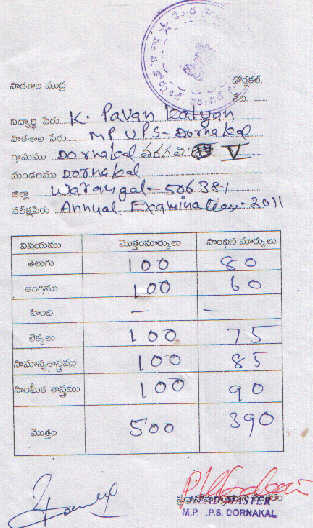 పాఠశాల ముద్ర
తేది.
విద్యార్థి పేరు K. Pavan Kalyan
పాఠశాల పేరు MPUPS-Dornakal
గ్రామము Dornakal తరగతి V
మండలము DORNAKAL
జిల్లా Warangal-506381
పరీక్షపేరు Annual Examination-2011
విషయము మొత్తంమార్కులు సాధించిన మార్కులు
తెలుగు 100 80
ఆంగ్లము 100 60
హిందీ - -
లెక్కలు 100 75
సామాన్యశాస్త్రము 100 85
సాంఘీక శాస్త్రము 100 90
మొత్తం 500 390
HEAD MASTER
M.P. .P.S. DORNAKAL